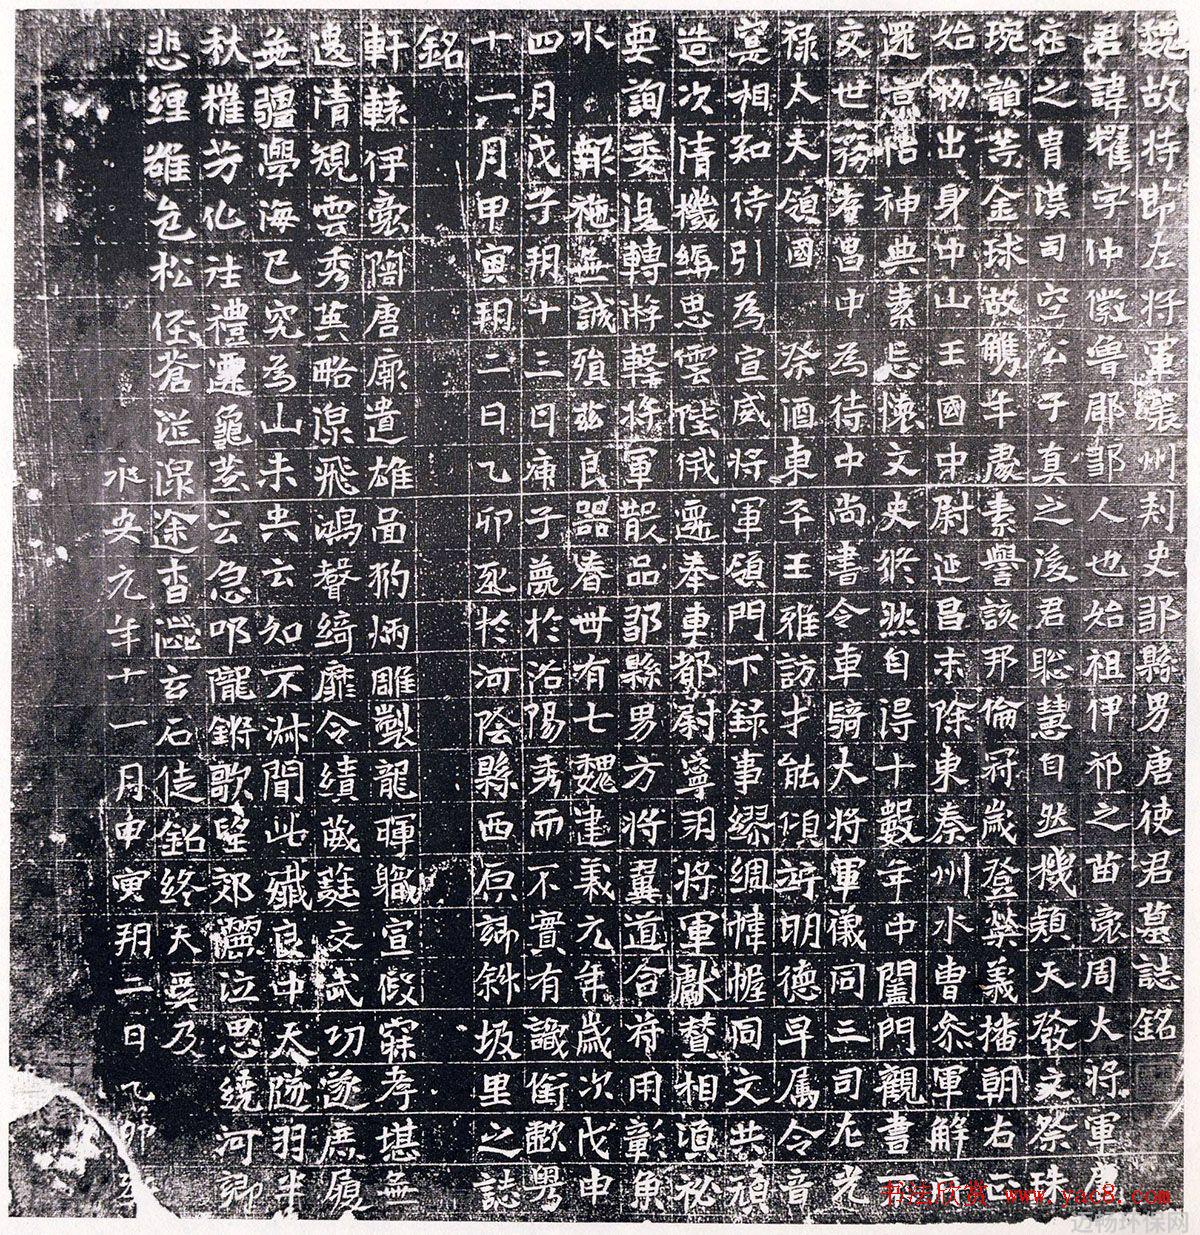 魏故持節左將軍襄州刺史鄒縣男唐使君墓誌銘
君諱耀字仲徽魯郡鄒人也始祖伊祁之苗裔周大將軍
之胄漢司空公于真之後君聰慧自然機穎天發文祭珠
琬韻芳金球故觿年處素譽該邦倫冠歲登榮義播朝右正
始初出身中山王國中尉延昌末除東秦州水曹參軍解
還京悟神典素忘懷文史悠然自得十數年中闔門觀書
交世務孝昌中為侍中尚書令車騎大將軍儀同三司左光
祿大夫領國 祭酒東平王雅訪才能頌竚明德早属令音
寔相知侍引為宣威將軍領門下録事繆綢幃幄洞文共禎
造次清機縟思雲陛俄遷奉車都尉寧羽將軍獻賛相湏祕
要詢委浸轉游擊將軍散品鄒縣男方將冀道合苻用彰魚
水 報施無誠殱茲良器春卌有七魏建義元年歲次戊申
四月戊子朔十三日庚子薨於洛陽秀而不實有識銜歎粤
十一月甲寅朔二日乙卯 於河陰縣西原 斜坂里之誌
銘
軒轅伊裔陶唐 遺雄畐豹炳雕製龍暉 宣假寐孝堪無
邊清規雲秀英略淵飛鴻聲綺靡令績葳蕤文武切邃庶履
無疆學海已究為山未央云知不淋間此殱良中天隧羽半
秋摧芳化注禮遷龜蓍云急叩隴鏘歌望郊 泣思繞河卿
悲纏雄色松侄蒼茫深途杳 玄石徒銘終天 乃
永安元年十一月甲寅朔二日乙卯
书法欣赏 www.yac8.com
迈畅环保网